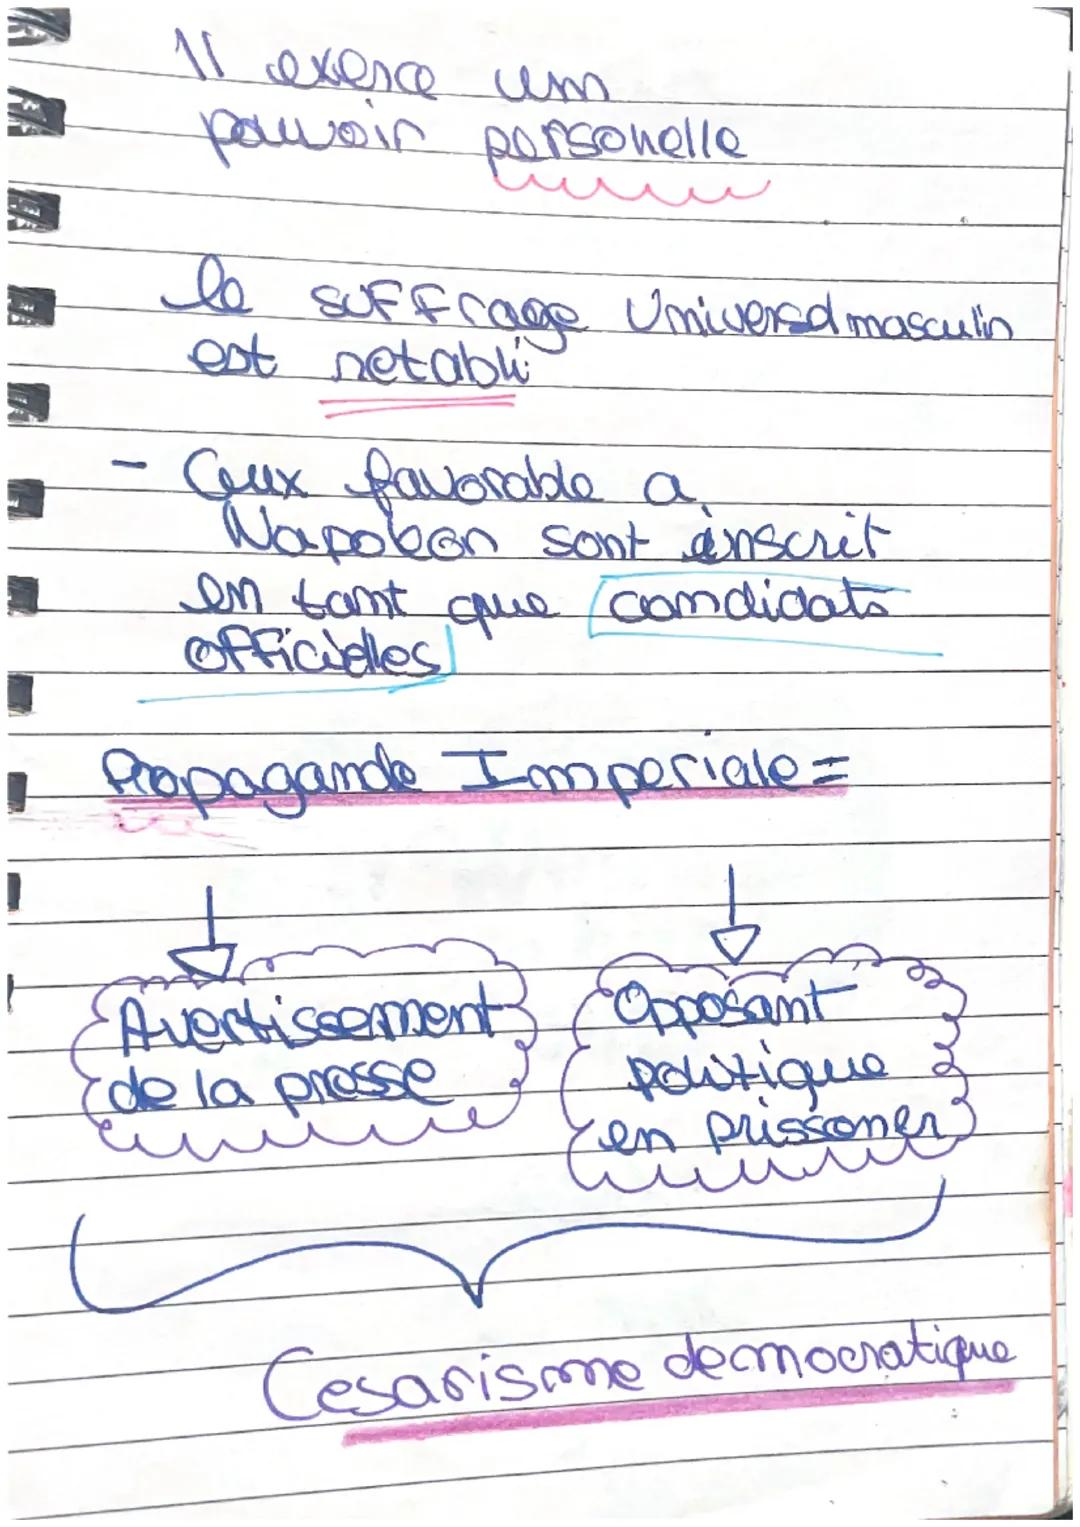 Il exerce um
pouvoir personelle
le suffrage Universel masculin
est retabli
- Ceux favorable a
Napoleon sont inscrit
en tant que candidats
officielles
Propagande Imperiale =
Avertissement
de la presse
Opposant
politique
en prissoner
Cesarisme democratique